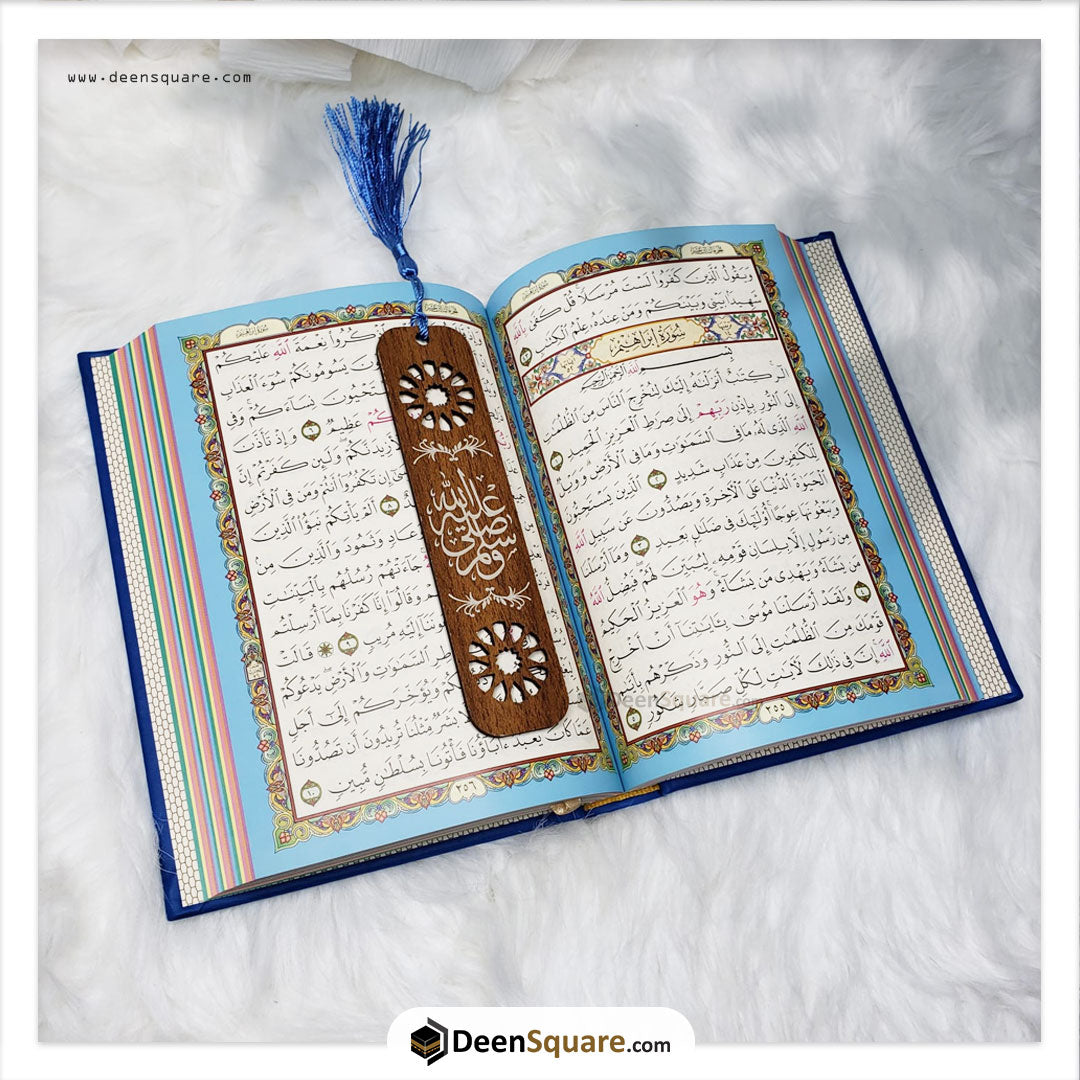 www.deensquare.com
وَيَقُولُ ٱلَّذِينَ كَفَرُوا۟ لَسْتَ مُرْسَلًا ۚ قُلْ كَفَىٰ بِٱللَّهِ
شَهِيدًۢا بَيْنِى وَبَيْنَكُمْ وَمَنْ عِندَهُۥ عِلْمُ ٱلْكِتَٰبِ ٤٣
سُورَةُ إِبْرَاهِيمَ
بِسْمِ ٱللَّهِ ٱلرَّحْمَٰنِ ٱلرَّحِيمِ
الٓر ۚ كِتَٰبٌ أَنزَلْنَٰهُ إِلَيْكَ لِتُخْرِجَ ٱلنَّاسَ مِنَ ٱلظُّلُمَٰتِ
إِلَى ٱلنُّورِ بِإِذْنِ رَبِّهِمْ إِلَىٰ صِرَٰطِ ٱلْعَزِيزِ ٱلْحَمِيدِ ١
ٱللَّهِ ٱلَّذِى لَهُۥ مَا فِى ٱلسَّمَٰوَٰتِ وَمَا فِى ٱلْأَرْضِ ۗ وَوَيْلٌ
لِّلْكَٰفِرِينَ مِنْ عَذَابٍ شَدِيدٍ ٢ ٱلَّذِينَ يَسْتَحِبُّونَ
ٱلْحَيَوٰةَ ٱلدُّنْيَا عَلَى ٱلْءَاخِرَةِ وَيَصُدُّونَ عَن سَبِيلِ ٱللَّهِ
وَيَبْغُونَهَا عِوَجًا ۚ أُو۟لَٰٓئِكَ فِى ضَلَٰلٍۭ بَعِيدٍ ٣ وَمَآ أَرْسَلْنَا
مِن رَّسُولٍ إِلَّا بِلِسَانِ قَوْمِهِۦ لِيُبَيِّنَ لَهُمْ ۖ فَيُضِلُّ ٱللَّهُ
مَن يَشَآءُ وَيَهْدِى مَن يَشَآءُ ۚ وَهُوَ ٱلْعَزِيزُ ٱلْحَكِيمُ
٤ وَلَقَدْ أَرْسَلْنَا مُوسَىٰ بِـَٔايَٰتِنَآ أَنْ أَخْرِجْ
قَوْمَكَ مِنَ ٱلظُّلُمَٰتِ إِلَى ٱلنُّورِ وَذَكِّرْهُم بِأَيَّىٰمِ
ٱللَّهِ ۚ إِنَّ فِى ذَٰلِكَ لَءَايَٰتٍ لِّكُلِّ شَكُورٍ ٥
٢٥٥
DeenSquare.com
نِعْمَةَ ٱللَّهِ عَلَيْكُمْ
يَسُومُونَكُمْ سُوٓءَ ٱلْعَذَابِ
نِسَآءَكُمْ ۚ وَفِى
عَظِيمٌ ٦ وَإِذْ تَأَذَّنَ
لَأَزِيدَنَّكُمْ ۖ وَلَئِن كَفَرْتُمْ إِنَّ
إِن تَكْفُرُوٓا۟ أَنتُمْ وَمَن فِى ٱلْأَرْضِ
٨ أَلَمْ يَأْتِكُمْ نَبَؤُا۟ ٱلَّذِينَ
وَعَادٍ وَثَمُودَ ۛ وَٱلَّذِينَ مِنۢ
جَآءَتْهُمْ رُسُلُهُم بِٱلْبَيِّنَٰتِ
وَقَالُوٓا۟ إِنَّا كَفَرْنَا بِمَآ أُرْسِلْتُم
إِلَيْهِ مُرِيبٍ ٩ قَالَتْ
ٱلسَّمَٰوَٰتِ وَٱلْأَرْضِ ۖ يَدْعُوكُمْ
وَيُؤَخِّرَكُمْ إِلَىٰٓ أَجَلٍ
بَشَرٌ مِّثْلُنَا تُرِيدُونَ أَن تَصُدُّونَا
عَمَّا كَانَ يَعْبُدُ ءَابَآؤُنَا فَأْتُونَا بِسُلْطَٰنٍ مُّبِينٍ ١٠
٢٥٦
صلى الله عليه وسلم
DeenSquare.com